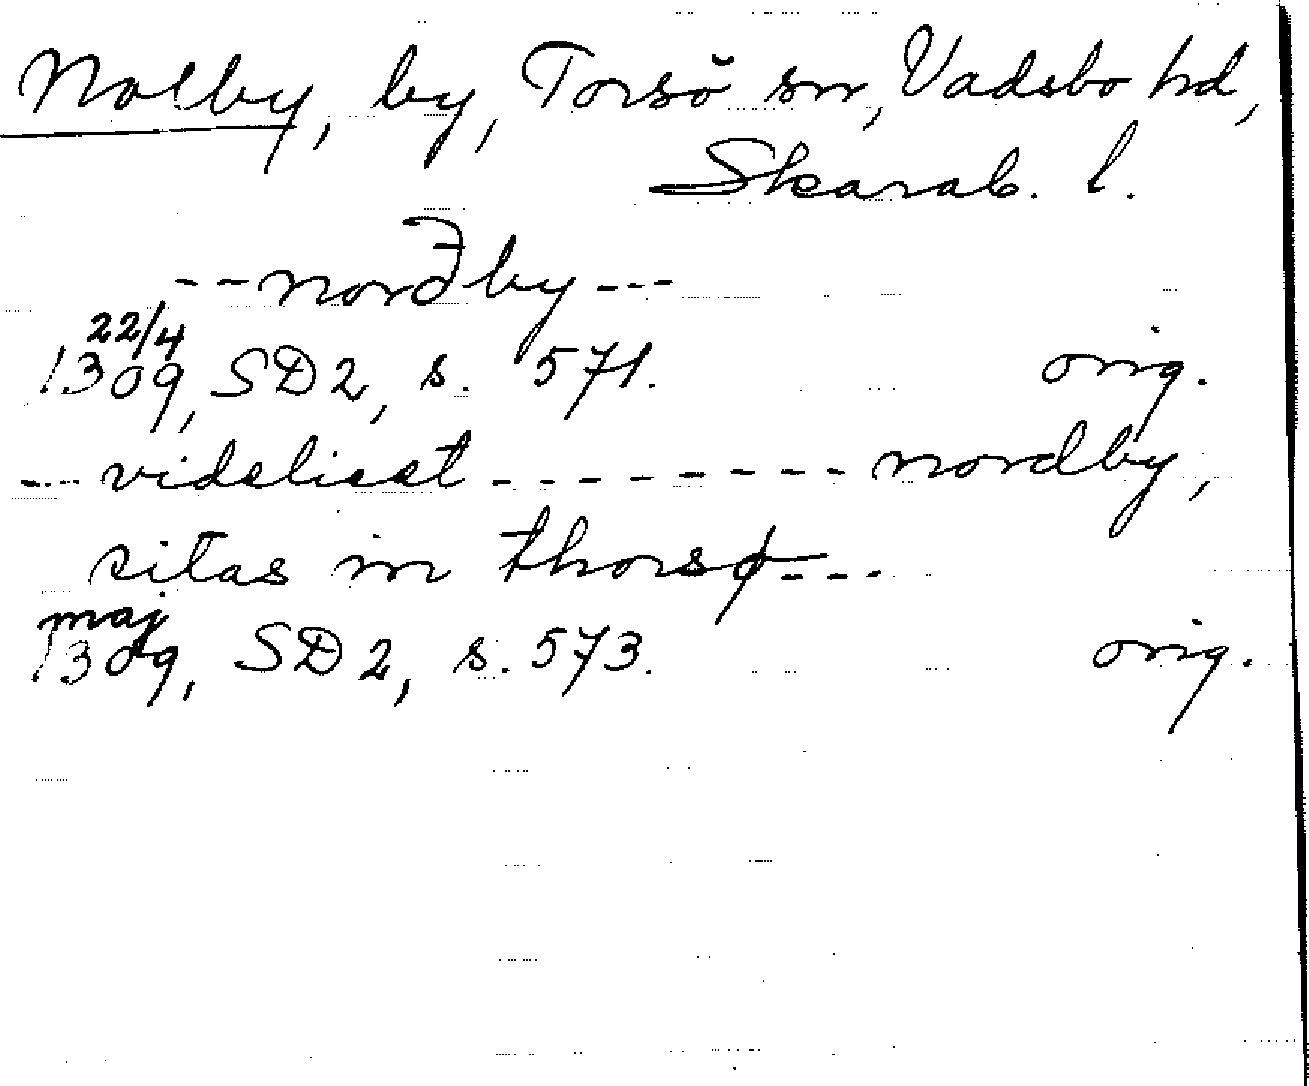 Nolby, by, Torsö sn, Vadsbo hd,
Skarab. l.
--norðby---
22/4
1309, SD2, s. 571. orig.
--- videlicet -------- nordby,
sitas in thorsø---
maj
1309, SD2, s. 573. orig.